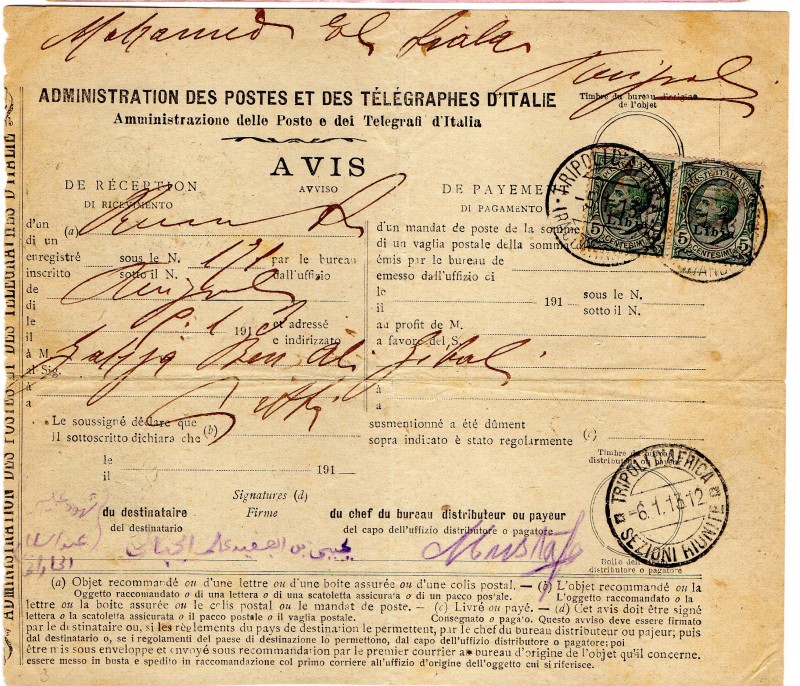 Mohamed El
Tripoli
ADMINISTRATION DES POSTES ET DES TÉLÉGRAPHES D'ITALIE
Amministrazione delle Poste e dei Telegrafi d'Italia
Timbre du bureau d'origine
de l'objet
AVIS
AVVISO
DE RÉCEPTION
DI RICEVIMENTO
d'un (a)
di un
enregistré sous le N. 171 par le bureau
inscritto sotto il N. dall'uffizio
de Tripoli
di
le 191 et adressé
il e indirizzato
à M. Ben Ali
al Sig.
à
a
DE PAYEME
DI PAGAMENTO
d'un mandat de poste de la somme
di un vaglia postale della somma
émis par le bureau de
emesso dall'uffizio di
le 191 sous le N.
il sotto il N.
au profit de M.
a favore del S.
à
a
POSTE ITALIANE
Libia
5 CENTESIMI 5
POSTE ITALIANE
Libia
5 CENTESIMI 5
Le soussigné déclare que (b)
Il sottoscritto dichiara che
susmentionné a été dûment (c)
sopra indicato è stato regolarmente
le 191
il
Timbre du bureau
distributeur ou payeur
TRIPOLI D'AFRICA
-6.1.13.12
SEZIONI RIUNITE
Signatures (d)
Firme
du destinataire
del destinatario
du chef du bureau distributeur ou payeur
del capo dell'uffizio distributore o pagatore
Bollo dell'
distributore o pagatore
يحيى بن
Mustafa
ADMINISTRATION DES POSTES ET DES TÉLÉGRAPHES D'ITALIE
(a) Objet recommandé ou d'une lettre ou d'une boite assurée ou d'une colis postal. — (b) L'objet recommandé ou la
Oggetto raccomandato o di una lettera o di una scatoletta assicurata o di un pacco postale. L'oggetto raccomandato o la
lettre ou la boite assurée ou le colis postal ou le mandat de poste. — (c) Livré ou payé. — (d) Cet avis doit être signé
lettera o la scatoletta assicurata o il pacco postale o il vaglia postale. Consegnato o pagato. Questo avviso deve essere firmato
par le destinataire ou, si les règlements du pays de destination le permettent, par le chef du bureau distributeur ou pajeur; puis
dal destinatario o, se i regolamenti del paese di destinazione lo permettono, dal capo dell'uffizio distributore o pagatore; poi
être mis sous enveloppe et envoyé sous recommandation par le premier courrier au bureau d'origine de l'objet qu'il concerne.
essere messo in busta e spedito in raccomandazione col primo corriere all'uffizio d'origine dell'oggetto cui si riferisce.